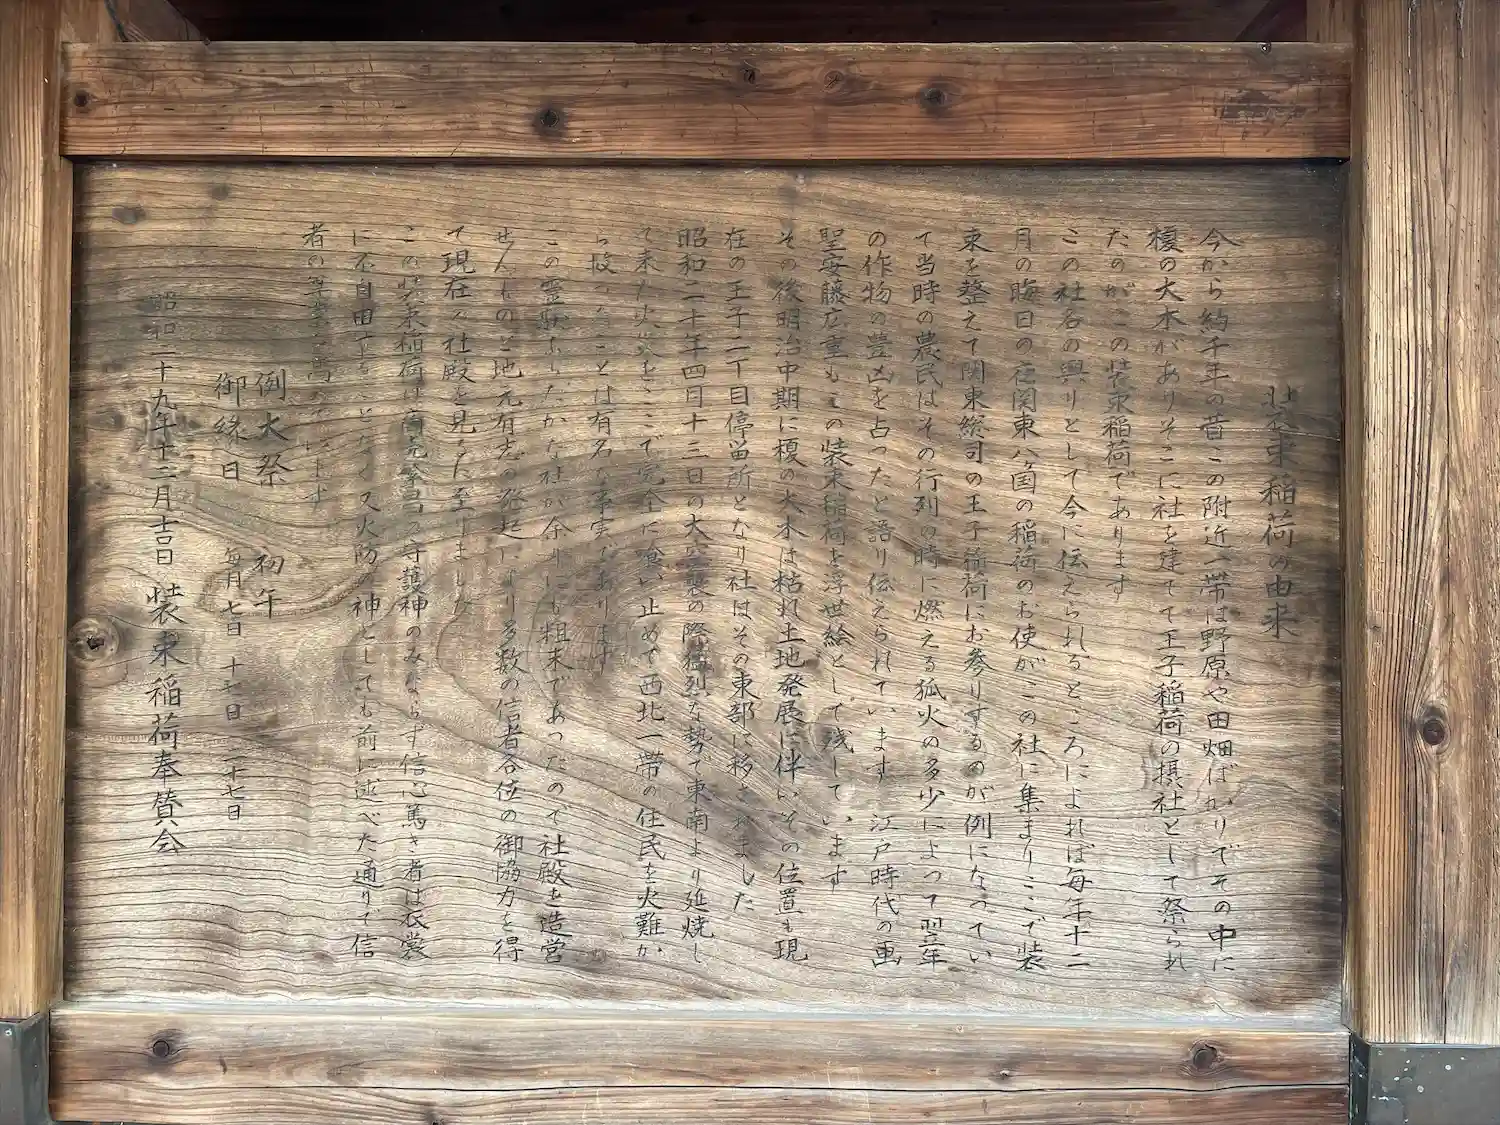 装束稲荷の由来
今から約千年の昔この附近一帯は野原や田畑ばかりでその中に
榎の大木がありそこに社を建てて王子稲荷の摂社として祭られ
たのがこの装束稲荷であります
この社名の興りとして今に伝えられるところによれば毎年十二
月の晦日の夜関東八ヶ国の稲荷のお使がこの社に集まりここで装
束を整えて関東総司の王子稲荷にお参りするのが例になってい
て当時の農民はその行列の時に燃える狐火の多少によって翌年
の作物の豊凶を占ったと語り伝えられています 江戸時代の画
聖安藤広重もこの装束稲荷を浮世絵として残しています
その後明治中期に榎の大木は枯れ土地発展に伴いその位置も現
在の王子二丁目停留所となり社はその東部に移されました
昭和二十年四月十三日の大空襲の際猛烈な勢で東南より延焼し
て来た火災をここで完全に喰い止めて西北一帯の住民を火難か
ら救ったことは有名な事実であります
この霊験あらたかな社が余りにも粗末であったので社殿を造営
せんものと地元有志の発起により多数の信者各位の御協力を得
て現在の社殿を見るに至りました
この装束稲荷は商売繁昌の守護神のみならず信心篤き者は衣裳
に不自由することなく 又火防の神としても前に述べた通りで信
者の尊崇を集めています
例大祭 初午
御縁日 毎月 七日 十七日 二十七日
昭和二十九年十二月吉日 装束稲荷奉賛会